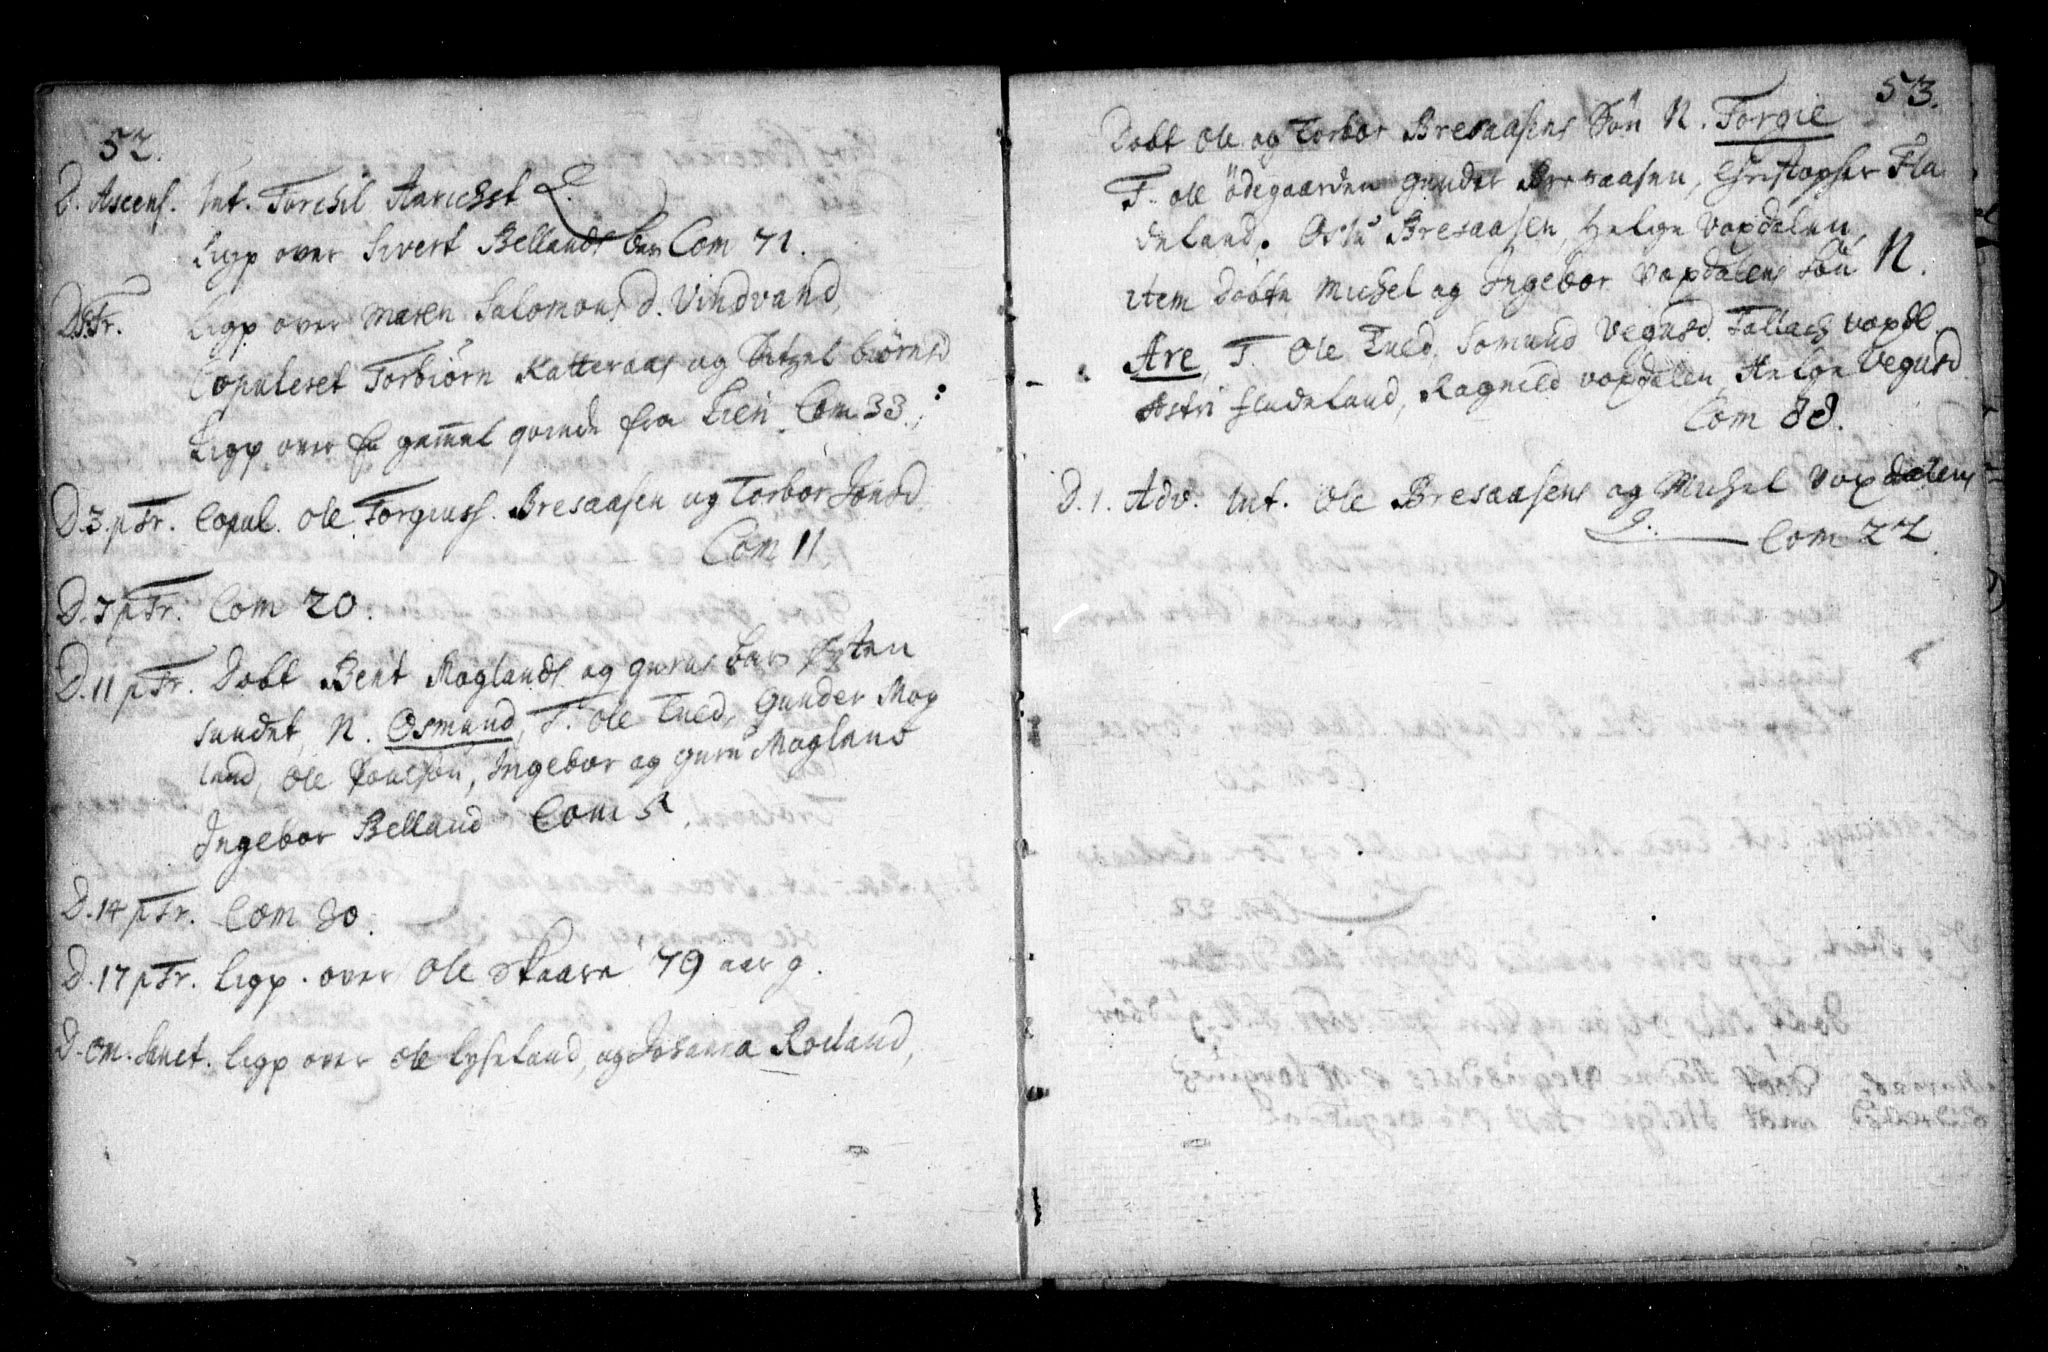 52.
D. Ascens. Int. Torchil Aarichst
Ligp over Sivert Bellands barn Com 71.
D. Tr. Ligp over Maren Salomons D. Vindvand,
Copuleret Torbiörn Katteraas og biörnsd
Ligp over gam̄el qvinde fra Lien. Com 33.
D. 3. p Tr. Copul. Ole Torgiuss. Bresaasen og Torbor Jonsd.
Com 11
D. 7 p Tr. Com 20.
D. 11 p Tr. Döbt Bent Moglands og Guros barn
sundet, N. Osmund, T. Ole Tued, Gunder Mog
land, Ole Poulsön, Ingebor og Guru Mogland
Ingebor Belland Com 5
D. 14 p Tr. Com 80.
D. 17 p Tr. Ligp. over Ole Skaare 79 aar g.
D. Om. Sanct. Ligp over Ole Lyseland, og Johanna Roeland,
53.
Döbt Ole og Torbor Bresaasens Sön N. Torgie
T. Ole Ödegaarden Gunder Bresaasen, Christopher Fla
deland. Bresaasen, Helge Vopdalen,
item döbte Michel og Ingebor Vopdalens Sön N.
Are, T. Ole Tued, Somund Vegusd. Tallach Vopdl.
Astri fladeland, Ragnild Vopdalen, Helge Vegusd
Com 88.
D. 1. Adv. Int. Ole Bresaasens og Michel Vopdalens
Com 22.